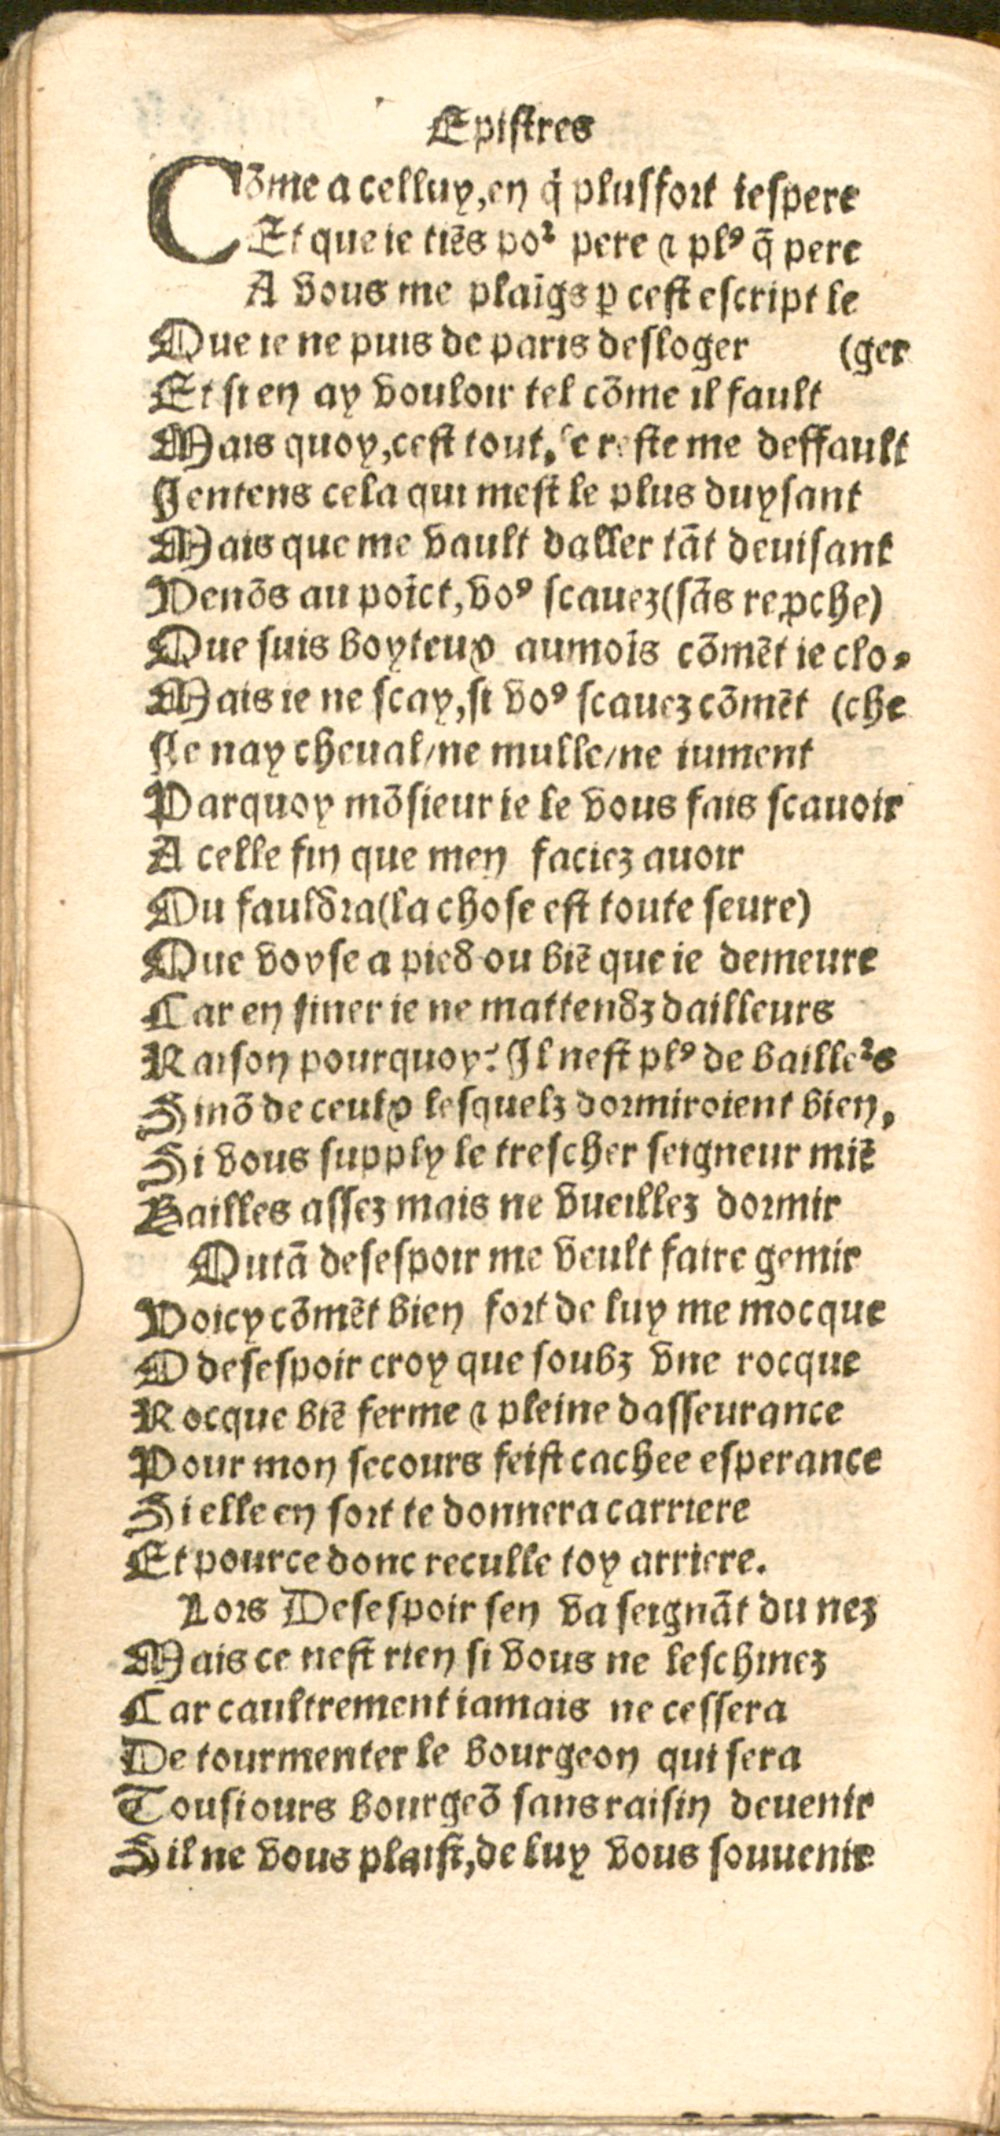 Epistres
Cõme a celluy,en q̃ plusfort iespere
Et que ie tiẽs poꝛ pere ⁊ plꝰ q̃ pere
A vous me plaĩgs ꝑ cest escript le
Que ie ne puis de paris desloger (ger
Et si en ay vouloir tel cõme il fault
Mais quoy,cest tout, le reste me deffault
Ientens cela qui mest le plus duysant
Mais que me vault daller tãt deuisant
Venõs au poĩct,voꝰ scauez(sãs reꝓche)
Que suis boyteux aumoĩs cõmẽt ie clo⸗
Mais ie ne scay,si voꝰ scauez cõmẽt (che
Ie nay cheual/ne mulle/ne iument
Parquoy mõsieur ie le vous fais scauoir
A celle fin que men faciez auoir
Ou fauldra(la chose est toute seure)
Que voyse a pied ou biẽ que ie demeure
Car en finer ie ne mattendz dailleurs
Raison pourquoy? Il nest plꝰ de bailleꝛs
Sinõ de ceulx lesquelz dormiroient bien,
Si vous supply le trescher seigneur miẽ
Bailles assez mais ne vueillez dormir
Qutã desespoir me veult faire gemir
Voicy cõmẽt bien fort de luy me mocque
O desespoir croy que soubz vne rocque
Rocque biẽ ferme ⁊ pleine dasseurance
Pour mon secours feist cachee esperance
Si elle en sort te donnera carriere
Et pource donc reculle toy arriere.
Lors Desespoir sen va seignãt du nez
Mais ce nest rien si vous ne leschinez
Car caultrement iamais ne cessera
De tourmenter le bourgeon qui sera
Tousiours bourgeõ sans raisin deuenir
Sil ne vous plaist,de luy vous souuenir